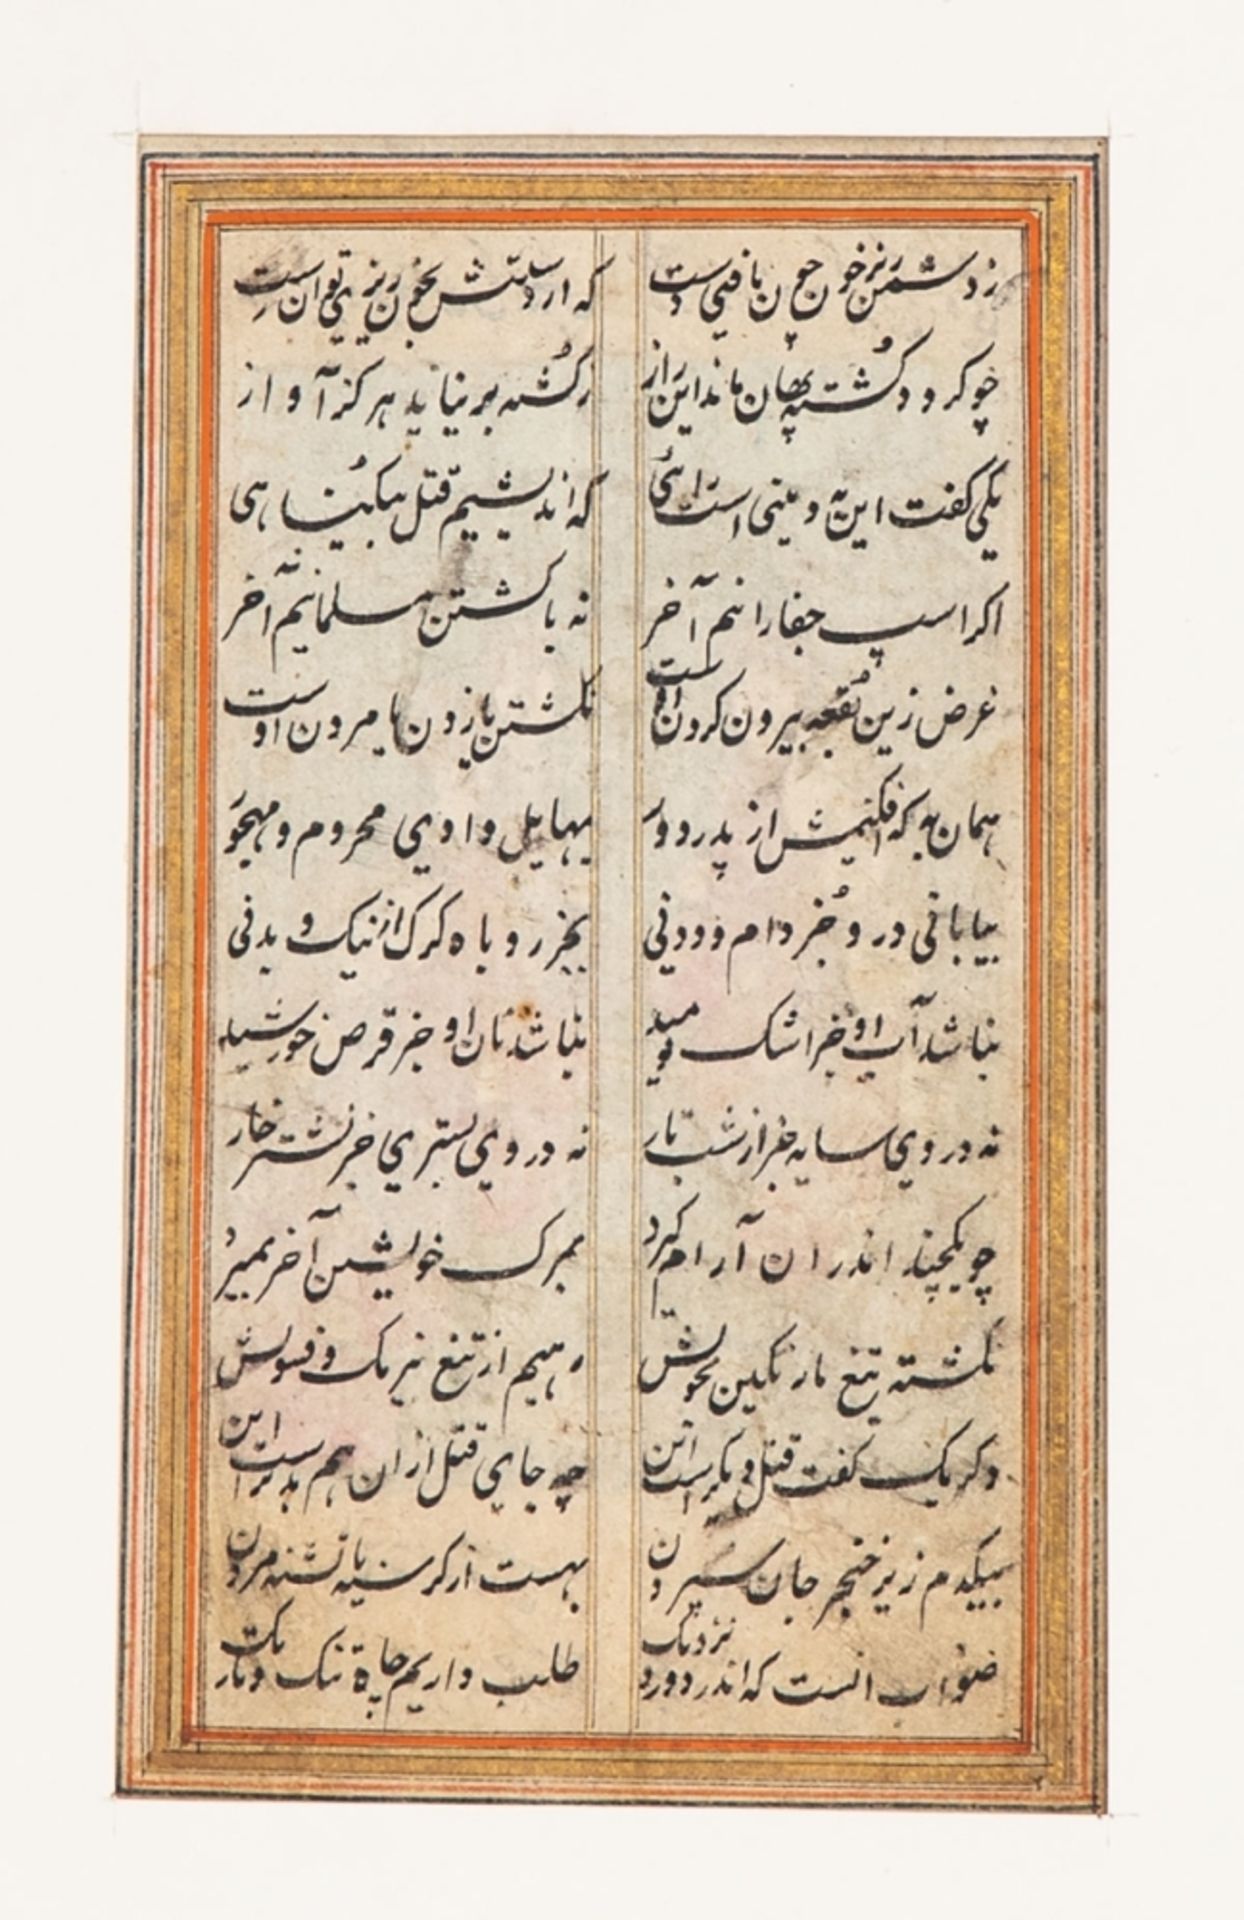 ز دشمن ریز خون چون یافتی دست که از دستش بخون ریزی توان رست
چو کردد کشته پنهان ماند این راز ز کشته بر نیاید هرکز آواز
یکی کفت این به بی دینی است راهی که اندیشیم قتل بیکناهی
اکر اسپ جفا رانیم آخر نه با کشتن مسلمانیم آخر
غرض زین بقعه بیرون کردن اوست نکشتن یا زدن یا مردن اوست
همان به که افکنیمش از پدر دور بهایل وادیی محروم و مهجور
بیابانی درو جز دام و دد نی بجز روباه کرک از نیک و بد نی
نباشد آب او جز اشک نومید نباشد نان او جز قرص خورشید
نه در وی سایه جز از شب تار نه در وی بستری جز نشتر خار
چو یکچند اندران آرام کیرد بمرک خویشتن آخر بمیرد
نکشته تیغ ما رنکین بخونش رهیم از تیغ نیرنک و فسونش
دکر یک کفت قتل دیکرست این چه جایی قتل ازان هم بدترست این
بیکدم زیر خنجر جان سپردن بهست از کرسنه یا تشنه مردن
صواب انست که اندر دور و نزدیک طلب داریم چاه تنک و تاریک